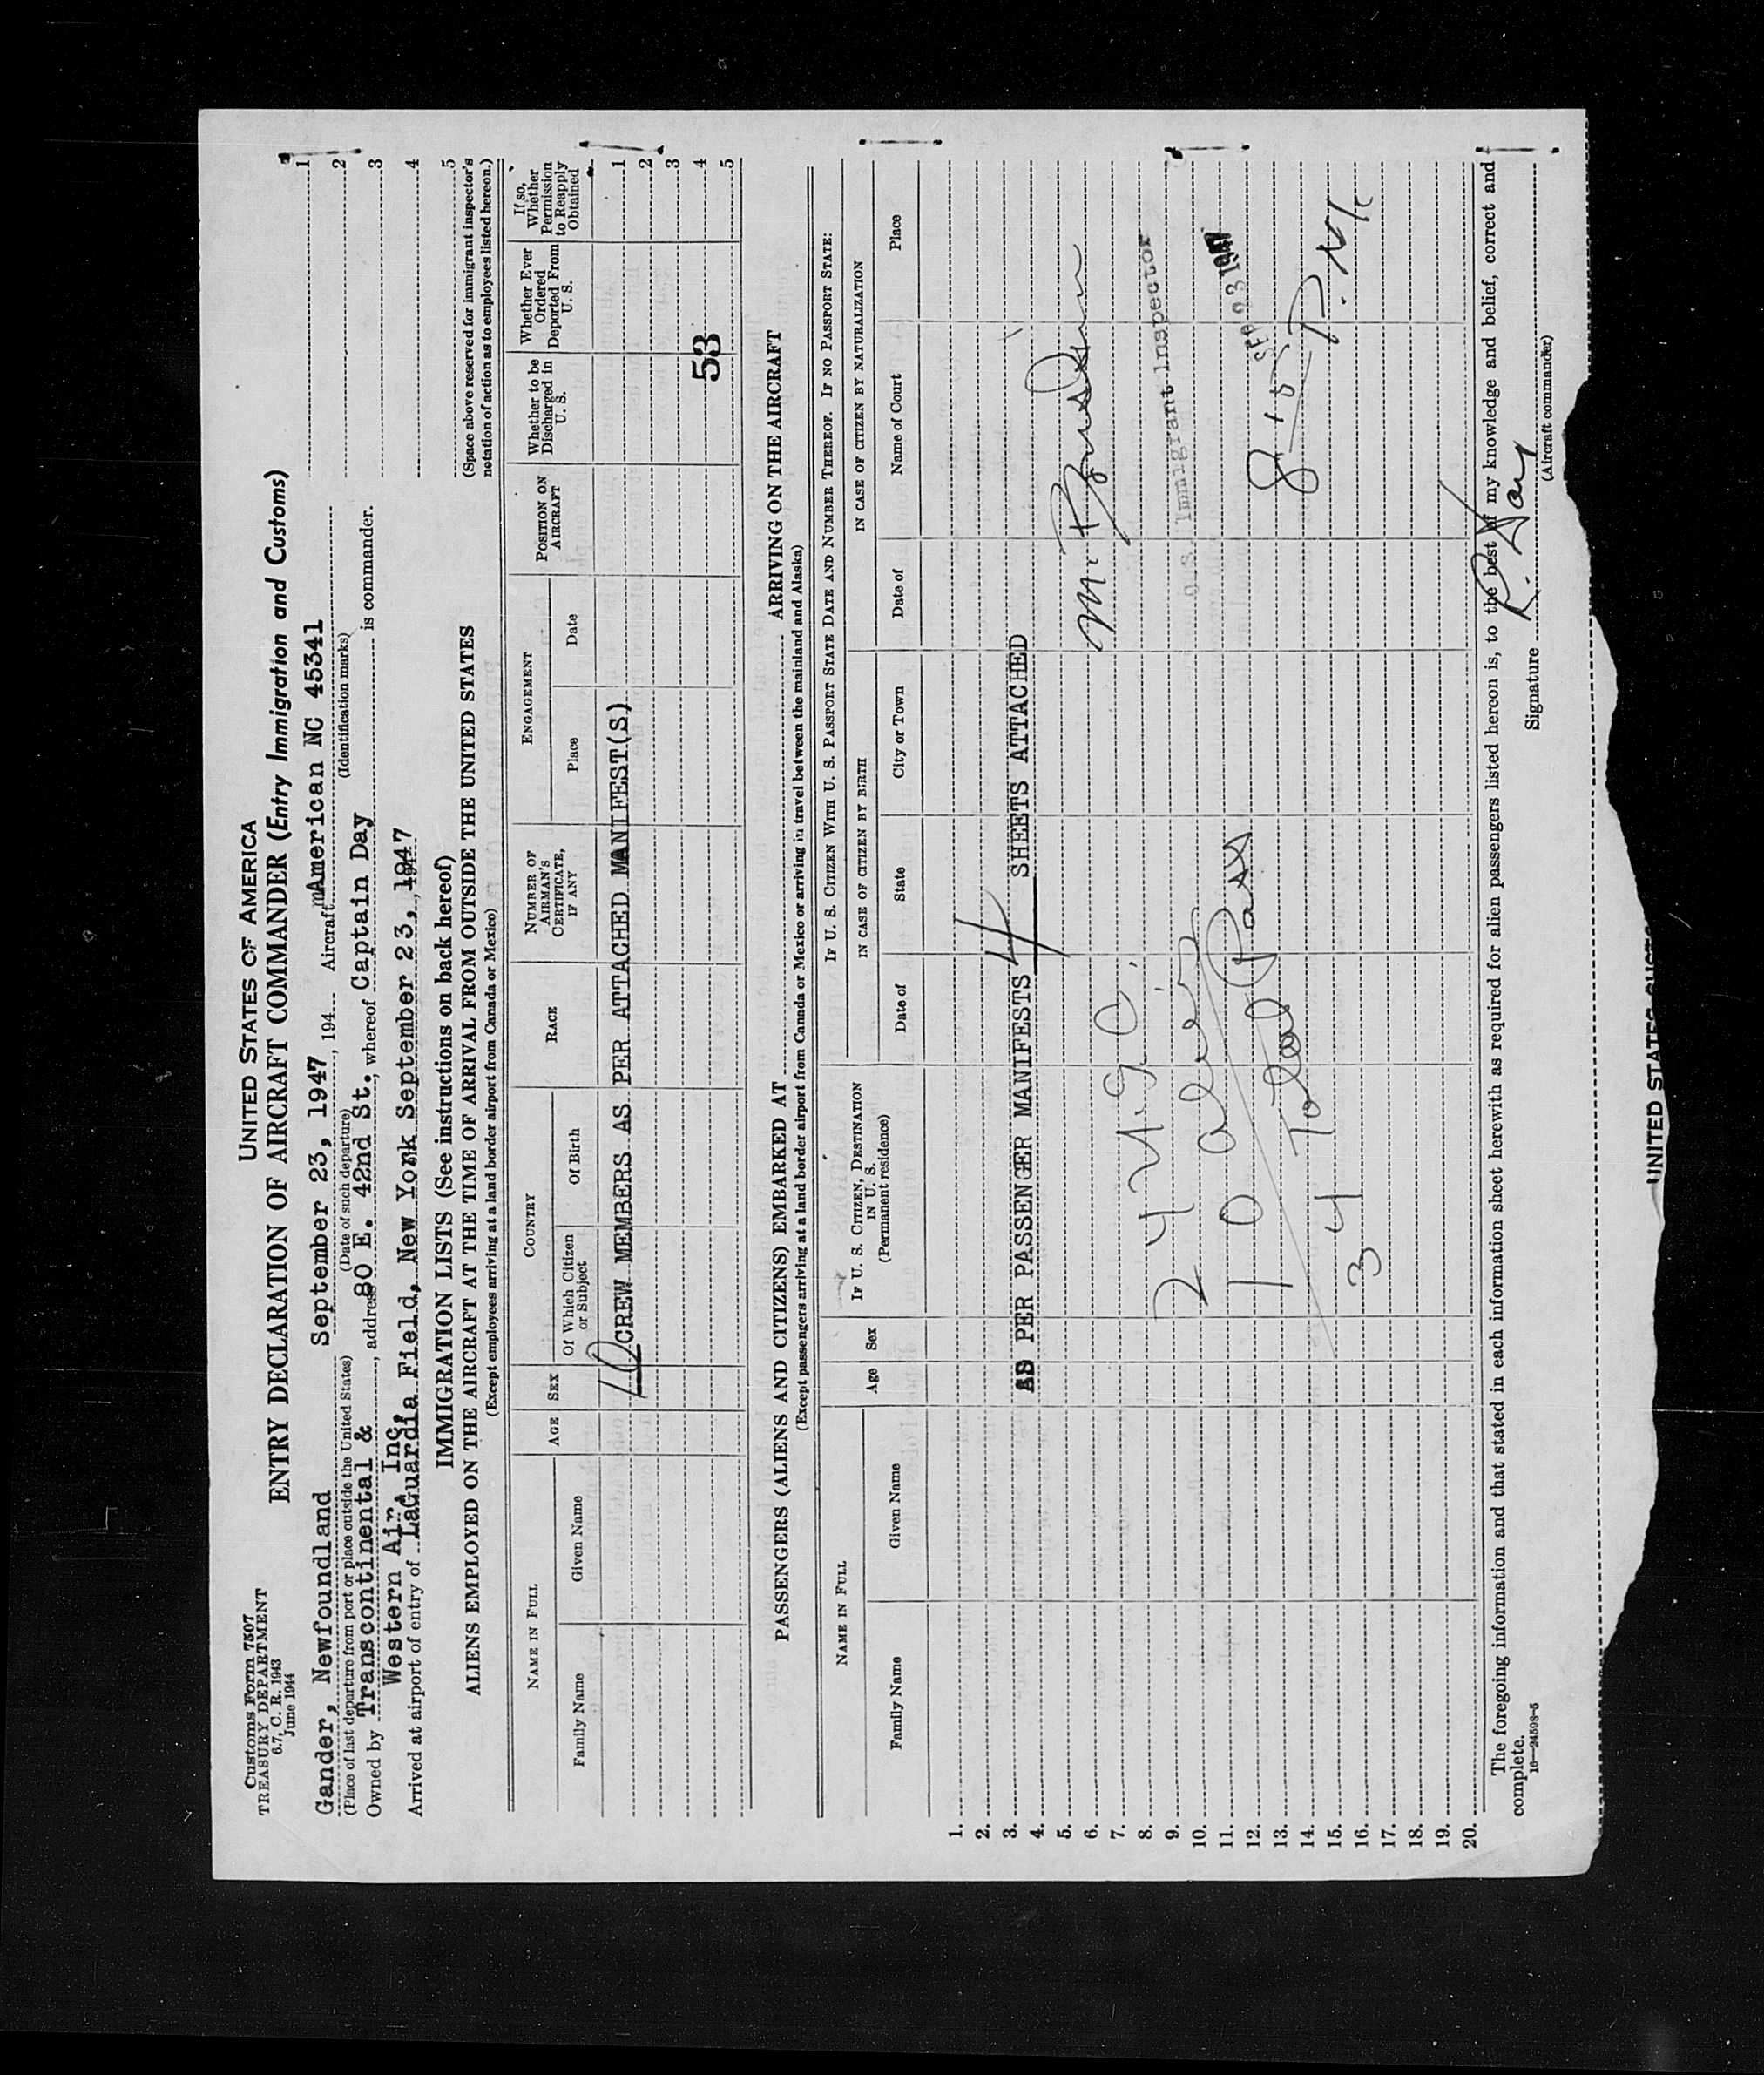 Customs Form 7507
TREASURY DEPARTMENT
6.7, C. R. 1943
June 1944
UNITED STATES OF AMERICA
ENTRY DECLARATION OF AIRCRAFT COMMANDER (Entry Immigration and Customs)
Gander, Newfoundland September 23, 1947, 194 Aircraft American NC 45341
(Place of last departure from port or place outside the United States) (Date of such departure) (Identification marks)
Owned by Transcontinental & Western Air, Inc., address 80 E. 42nd St., whereof Captain Day is commander.
Arrived at airport of entry of LaGuardia Field, New York September 23, 1947
1
2
3
4
5
(Space above reserved for immigrant inspector's
notation of action as to employees listed hereon.)
IMMIGRATION LISTS (See instructions on back hereof)
ALIENS EMPLOYED ON THE AIRCRAFT AT THE TIME OF ARRIVAL FROM OUTSIDE THE UNITED STATES
(Except employees arriving at a land border airport from Canada or Mexico)
NAME IN FULL
Family Name Given Name
AGE
SEX
COUNTRY
Of Which Citizen or Subject Of Birth
RACE
NUMBER OF AIRMAN'S CERTIFICATE, IF ANY
ENGAGEMENT
Place Date
POSITION ON AIRCRAFT
Whether to be Discharged in U. S.
Whether Ever Ordered Deported From U. S.
If so, Whether Permission to Reapply Obtained
10 CREW MEMBERS AS PER ATTACHED MANIFEST(S)
1
2
3
4
5
53
PASSENGERS (ALIENS AND CITIZENS) EMBARKED AT ARRIVING ON THE AIRCRAFT
(Except passengers arriving at a land border airport from Canada or Mexico or arriving in travel between the mainland and Alaska)
NAME IN FULL
Family Name Given Name
Age Sex
IF U. S. CITIZEN, DESTINATION IN U. S.
(Permanent residence)
IF U. S. CITIZEN WITH U. S. PASSPORT STATE DATE AND NUMBER THEREOF. IF NO PASSPORT STATE:
IN CASE OF CITIZEN BY BIRTH
Date of State City or Town
IN CASE OF CITIZEN BY NATURALIZATION
Date of Name of Court Place
1.
2.
3.
4.
5.
6.
7.
8.
9.
10.
11.
12.
13.
14.
15.
16.
17.
18.
19.
20.
AS PER PASSENGER MANIFESTS 4 SHEETS ATTACHED
24
10 Aliens
34 Total Pass
U.S. Immigrant Inspector
SEP 23 1947
The foregoing information and that stated in each information sheet herewith as required for alien passengers listed hereon is, to the best of my knowledge and belief, correct and
complete.
16—24598-5
Signature R. Day
(Aircraft commander)
UNITED STATES